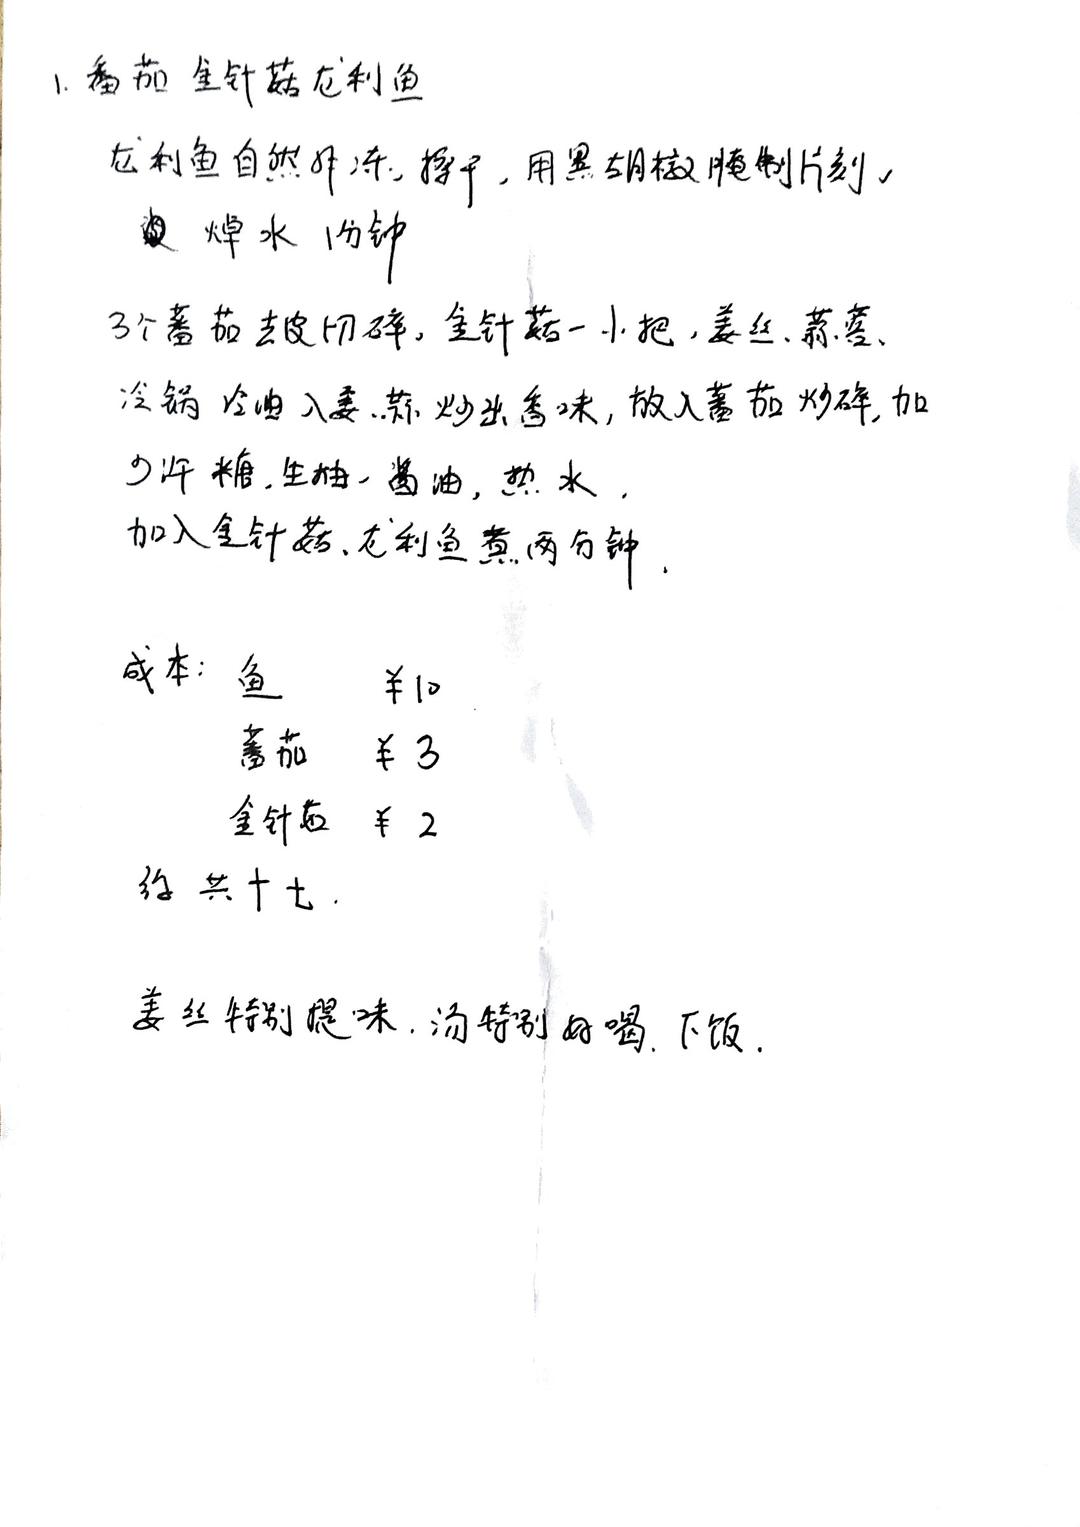 1. 番茄金针菇龙利鱼
龙利鱼自然升冻,擦干,用黑胡椒腌制片刻,
焯水1分钟
3个蕃茄去皮切碎,金针菇一小把,姜丝、蒜蓉、
冷锅冷油入姜、蒜炒出香味,放入蕃茄炒碎,加
少许糖、生抽、酱油,热水.
加入金针菇、龙利鱼煮两分钟.
成本: 鱼 ¥10
蕃茄 ¥3
金针菇 ¥2
约共十七.
姜丝特别提味.汤特别好喝.下饭.